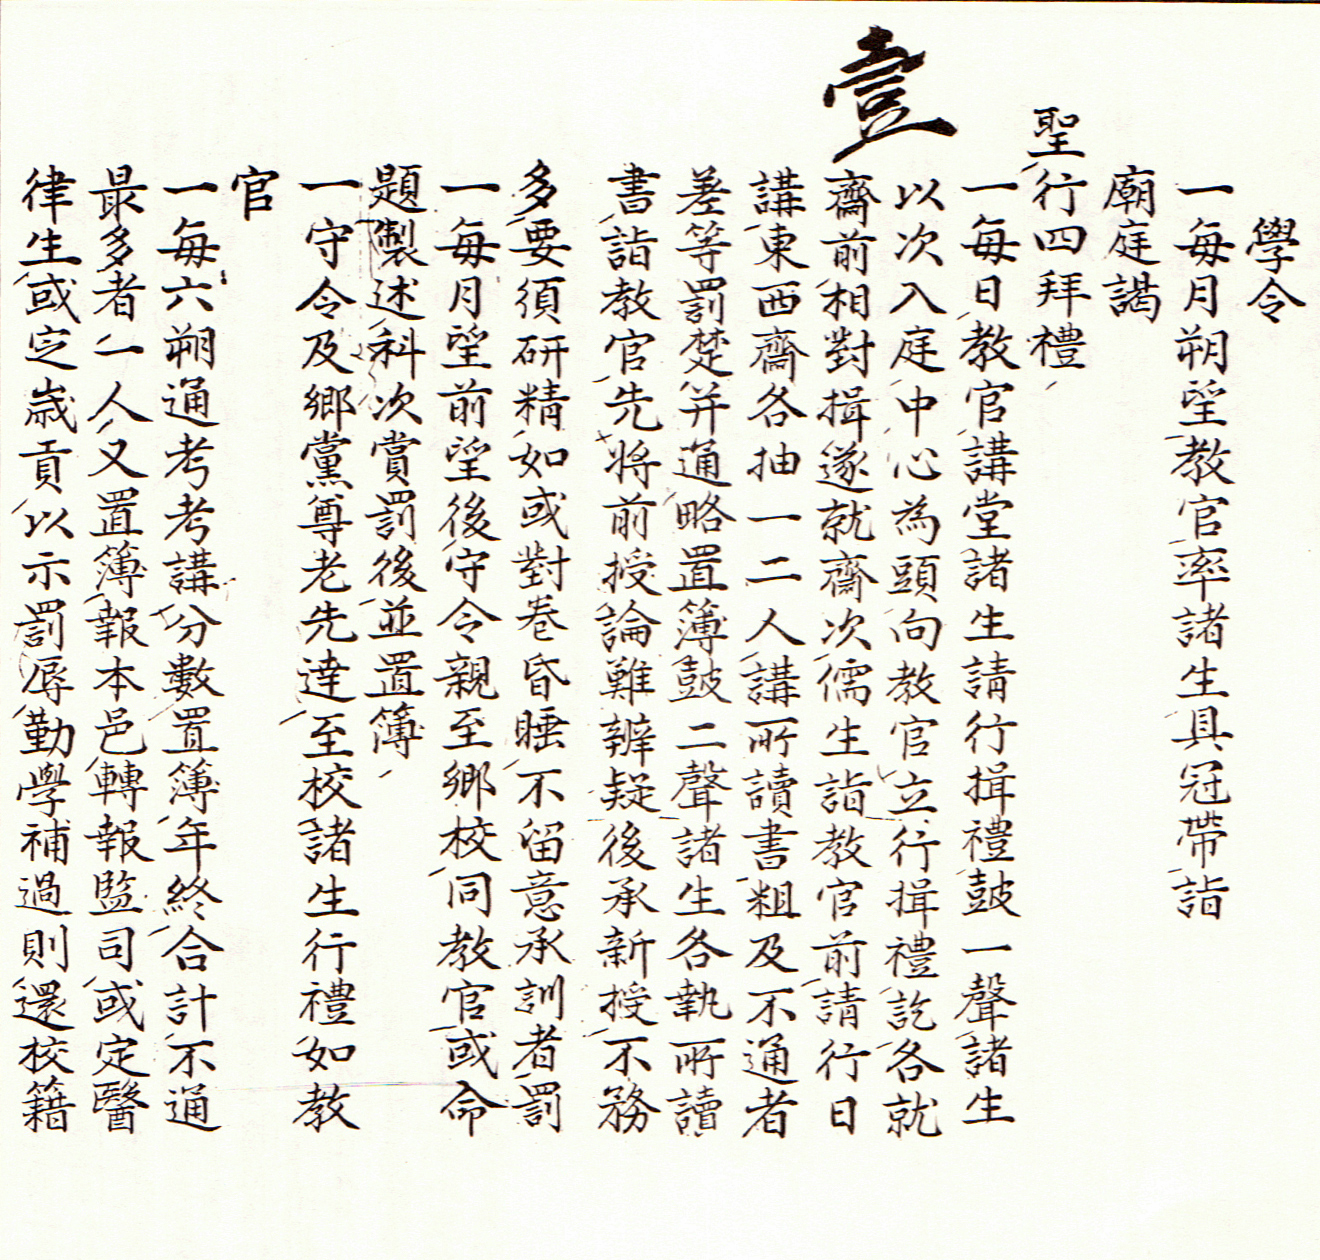 壹
學令
一每月朔望教官率諸生具冠帶詣
廟庭謁
聖行四拜禮
一每日教官講堂諸生請行揖禮鼓一聲諸生
以次入庭中心為頭向教官立行揖禮訖各就
齋前相對揖遂就齋次儒生詣教官前請行日
講東西齋各抽一二人講所讀書粗及不通者
差等罰楚并通略置簿鼓二聲諸生各執所讀
書詣教官先將前授論難辨疑後承新授不務
多要須研精如或對卷昏睡不留意承訓者罰
一每月望前望後守令親至鄉校同教官或命
題製述科次賞罰後並置簿
一守令及鄉黨尊老先達至校諸生行禮如教
官
一每六朔通考考講分數置簿年終合計不通
最多者一人又置簿報本邑轉報監司或定醫
律生或定歲貢以示罰辱勤學補過則還校籍